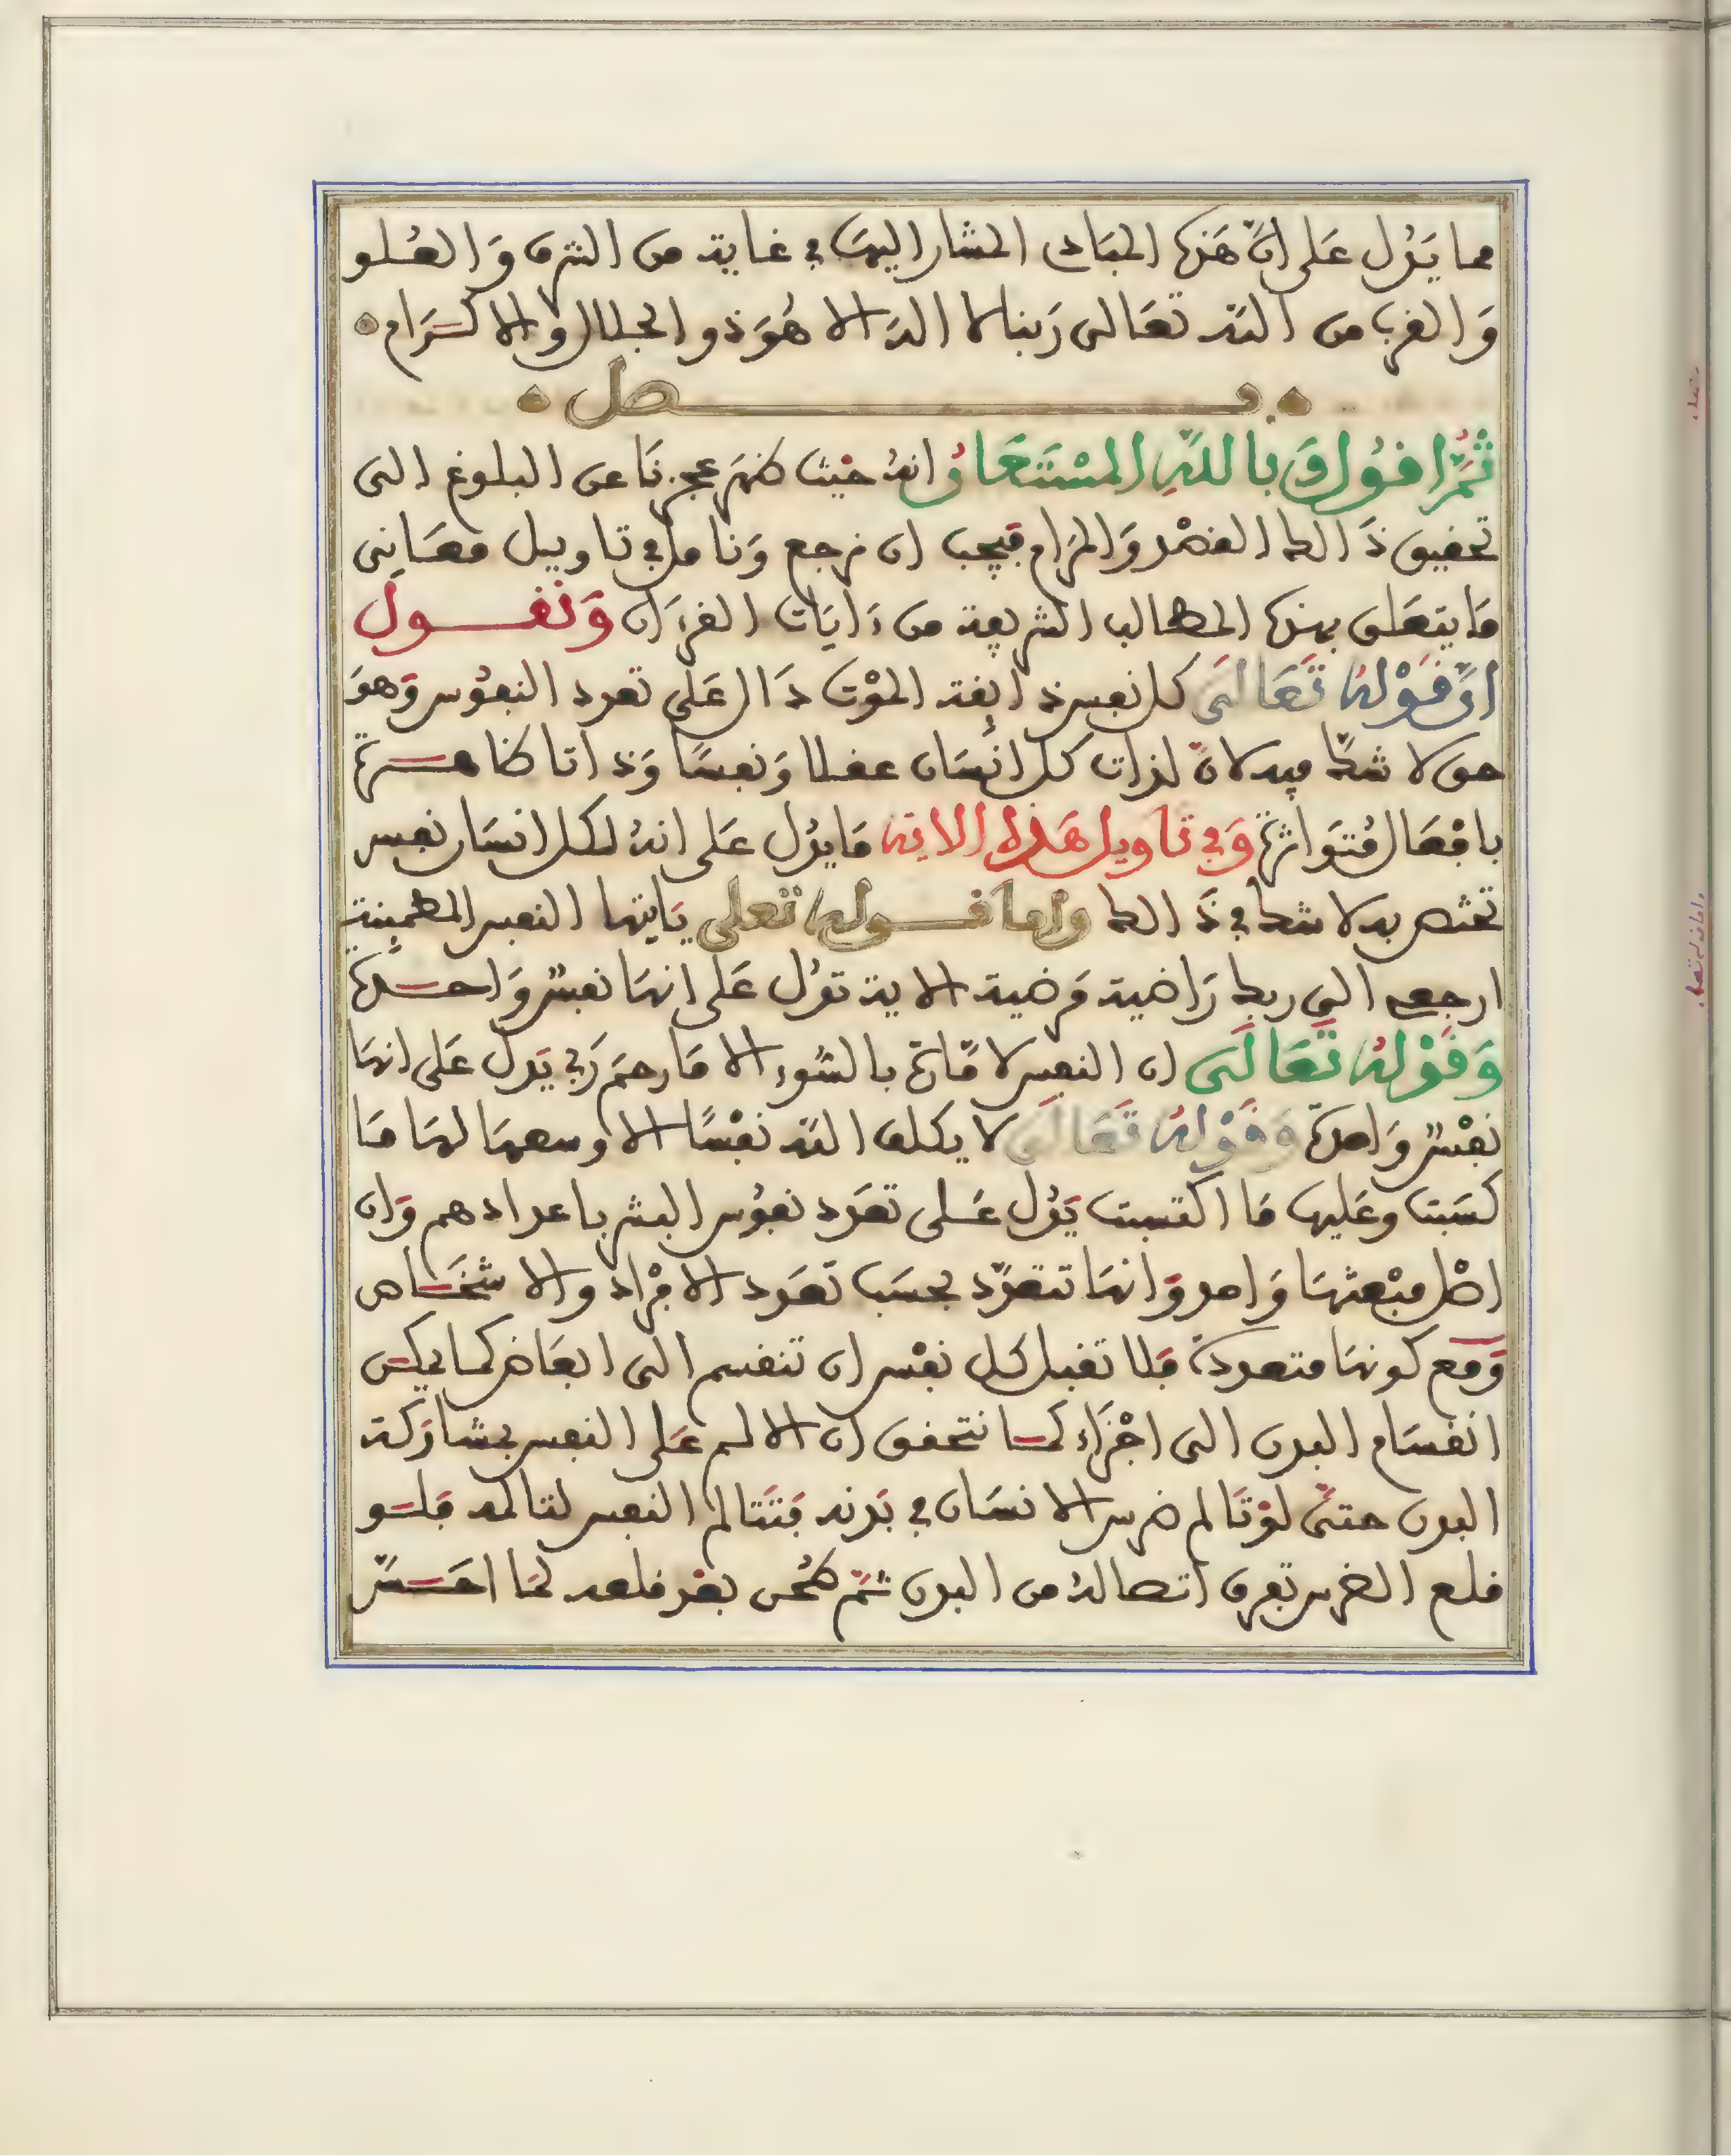 مما يَدُل عَلى انّ هَذه المبَادى المشار اليهَا في غاية من الشرف وَالعُلو
وَالقرب من الله تعَالى رَبنا لا اله الا هُوَ ذو الجلال والاكرَام
فصل
ثُمَّ اقُول وَبِاللهِ المسْتَعَانُ انهُ حَيْث ظهَر عجزنَا عن البلوغ الى
تحقيق ذَالك القصْد وَالمرَام فيجب ان نرجع وَنتامل في تاويل معَانِى
مَا يتعَلق بهذه المطالب الشريفة من ءَايَات القرءَان وَنقَول
انّ قَوْلهُ تَعَالَى كل نفس ذايقة الموْت دَال عَلى تعدد النفوُس وَهوَ
حق لا شكّ فيه لانّ لذات كل انْسَان عقلا وَنفسًا وَذاتا ظاهرة
بافْعَال مُتوَاترة وَفي تاويل هَذه الاية مَا يدُل عَلى انهُ لكل انسَان نفس
تختص به لا شك في ذَالك واما قوله تعلى يَايتها النفس المطمينة
ارجعى الى ربك رَاضية مَرضية الاية تدُل عَلى انهَا نفسٌ وَاحدة
وَقَوْلهُ تَعَالَى ان النفس لامّارة بالسُوء الا مَا رحمَ رَبي يَدل عَلى انهَا
نفْسٌ وَاحدة وَقَوْلهُ تَعَالَى لا يكلف الله نفْسًا الا وسعهَا لهَا مَا
كسَبت وعَليها مَا اكتسبت يَدُل عَلى تعَدد نفوُس البشر باعدادهم وَان
اصْل منبْعثهَا وَاحد وَانهَا تتعدّد بحسَب تعَدد الافْرَاد والاشخَاص
وَمَع كونهَا متعددة فَلا تقبل كل نفْس ان تنقسم الى ابعَاض كما يمكن
انقسَام البدن الى اجْزَاء كمَا نتحقق ان الالم عَلى النفس بمشارَكة
البدن حتىّ لوْ تَالم ضرس الانسَان في بَدنه فَتتالم النفس لتالمه فَلو
قلع الضرس تفرق اتصالهُ من البدن ثمّ طُحن بعْد قلعه لمَا احَسّت